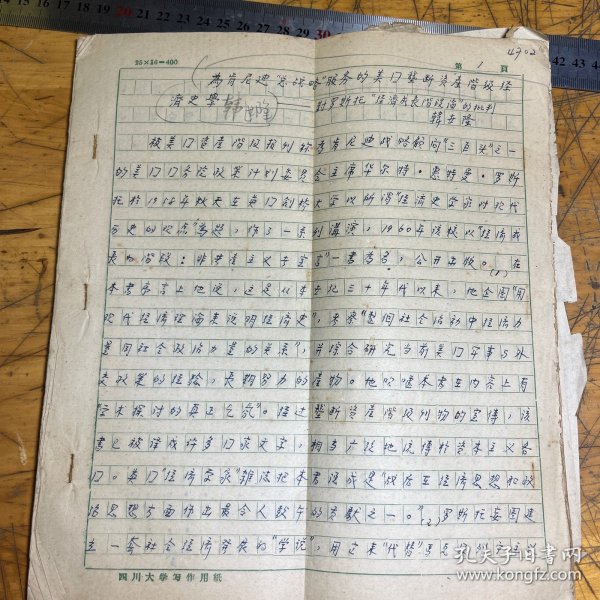 25×16=400
第 1 頁
4702
为肯尼迪"总战略"服务的美国垄断资产阶级经
济史学 韩世隆
对罗斯托"经济成长阶段论"的批判
韩世隆
被美国资产阶级报刊称为肯尼迪战略顾问"三巨头"之一
的美国国务院政策计划委员会主席华尔特·惠特曼·罗斯
托于1958年秋天在英国剑桥大学以所谓"经济史学家对现代
历史的观点"为题,作了一系列讲演,1960年该校以"经济成
长的阶段:非共产主义宣言"一书为名,公开出版。(1)在
本书序言上他说,这是从本世纪三十年代以来,他企图"用
现代经济理论来说明经济史",考察"整个社会活动中经济力
量同社会政治力量的关系",并综合研究当前美国军事与外
交政策的经验,长期努力的产物。他吹嘘本书在内容上有
"学术探讨的真正气氛"。经过垄断资产阶级刊物的宣传,该
书已被译成许多国家文字,相当广泛地流传于资本主义各
国。英国"经济学家"杂志把本书说成是"战后在经济思想和政
治思想方面作出最令人鼓舞的贡献之一。"(2)罗斯托妄图建
立一套社会经济发展的"学说",用之来"代替"马克思的
四川大学写作用紙
孔夫子旧书网
www.kongfz.com